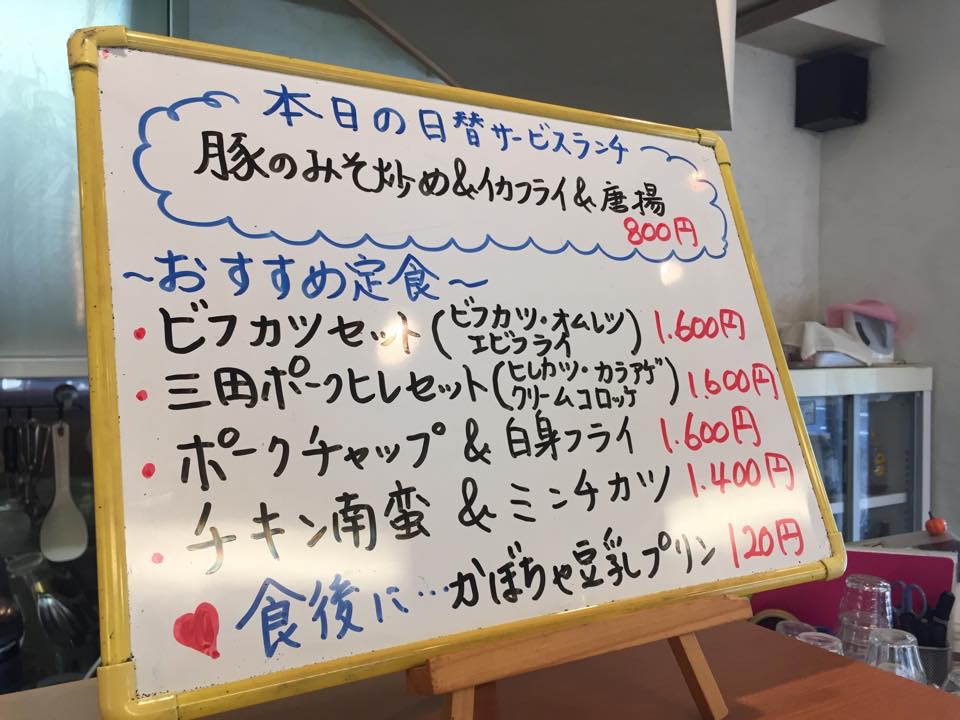 本日の日替サービスランチ
豚のみそ炒め&イカフライ&唐揚
800円
～おすすめ定食～
・ビフカツセット(ビフカツ・オムレツ 1.600円
エビフライ)
・三田ポークヒレセット(ヒレカツ・カラアゲ 1.600円
クリームコロッケ)
・ポークチャップ&白身フライ 1.600円
・チキン南蛮&ミンチカツ 1.400円
♥食後に…かぼちゃ豆乳プリン 120円